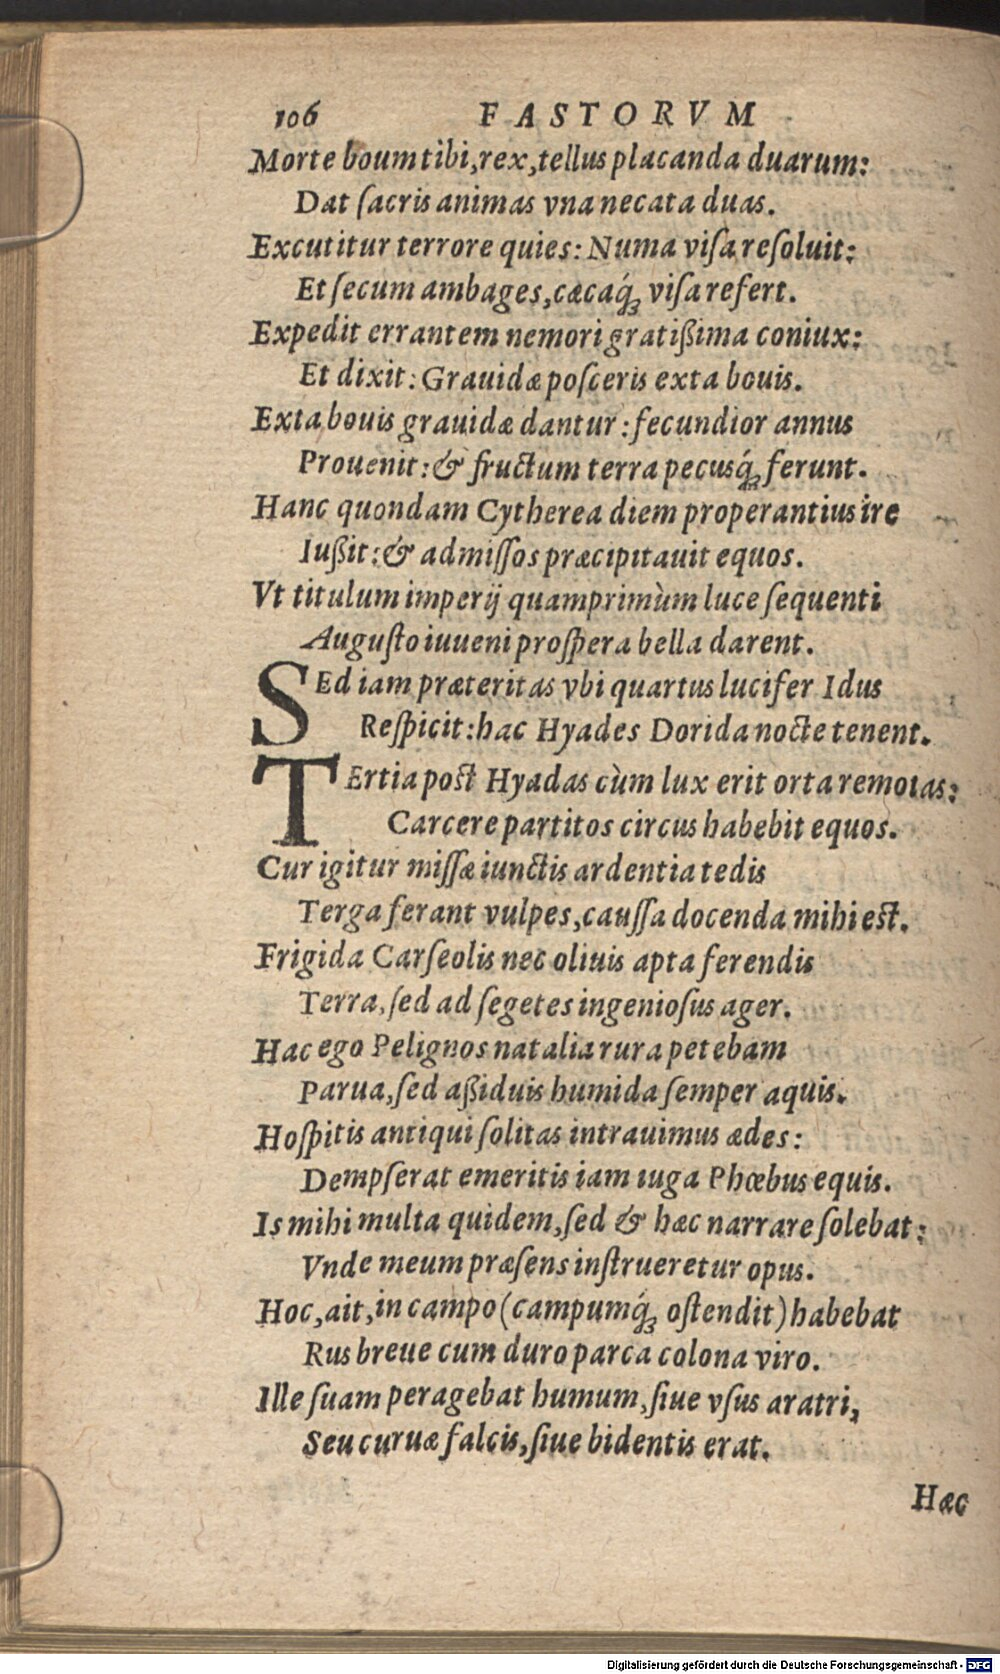 106 FASTORVM
Morte boum tibi, rex, tellus placanda duarum:
Dat ſacris animas vna necata duas.
Excutitur terrore quies: Numa viſa reſoluit:
Et ſecum ambages, cæcaq́ꝫ viſa refert.
Expedit errantem nemori gratißima coniux:
Et dixit: Grauidæ poſceris exta bouis.
Exta bouis grauidæ dantur: fecundior annus
Prouenit: & fructum terra pecusq́ꝫ ferunt.
Hanc quondam Cytherea diem properantius ire
Iußit: & admiſſos præcipitauit equos.
Vt titulum imperij quamprimùm luce ſequenti
Auguſto iuueni proſpera bella darent.
SEd iam præteritas vbi quartus lucifer Idus
Reſpicit: hac Hyades Dorida nocte tenent.
TErtia post Hyadas cùm lux erit orta remotas:
Carcere partitos circus habebit equos.
Cur igitur miſſæ iunctis ardentia tedis
Terga ferant vulpes, cauſſa docenda mihi est.
Frigida Carſeolis nec oliuis apta ferendis
Terra, ſed ad ſegetes ingenioſus ager.
Hac ego Pelignos natalia rura petebam
Parua, ſed aßiduis humida ſemper aquis.
Hoſpitis antiqui ſolitas intrauimus ædes:
Dempſerat emeritis iam iuga Phœbus equis.
Is mihi multa quidem, ſed & hæc narrare ſolebat:
Vnde meum præſens inſtrueretur opus.
Hoc, ait, in campo (campumq́ꝫ oſtendit) habebat
Rus breue cum duro parca colona viro.
Ille ſuam peragebat humum, ſiue vſus aratri,
Seu curuæ falcis, ſiue bidentis erat.
Hæc
Digitalisierung gefördert durch die Deutsche Forschungsgemeinschaft - DFG